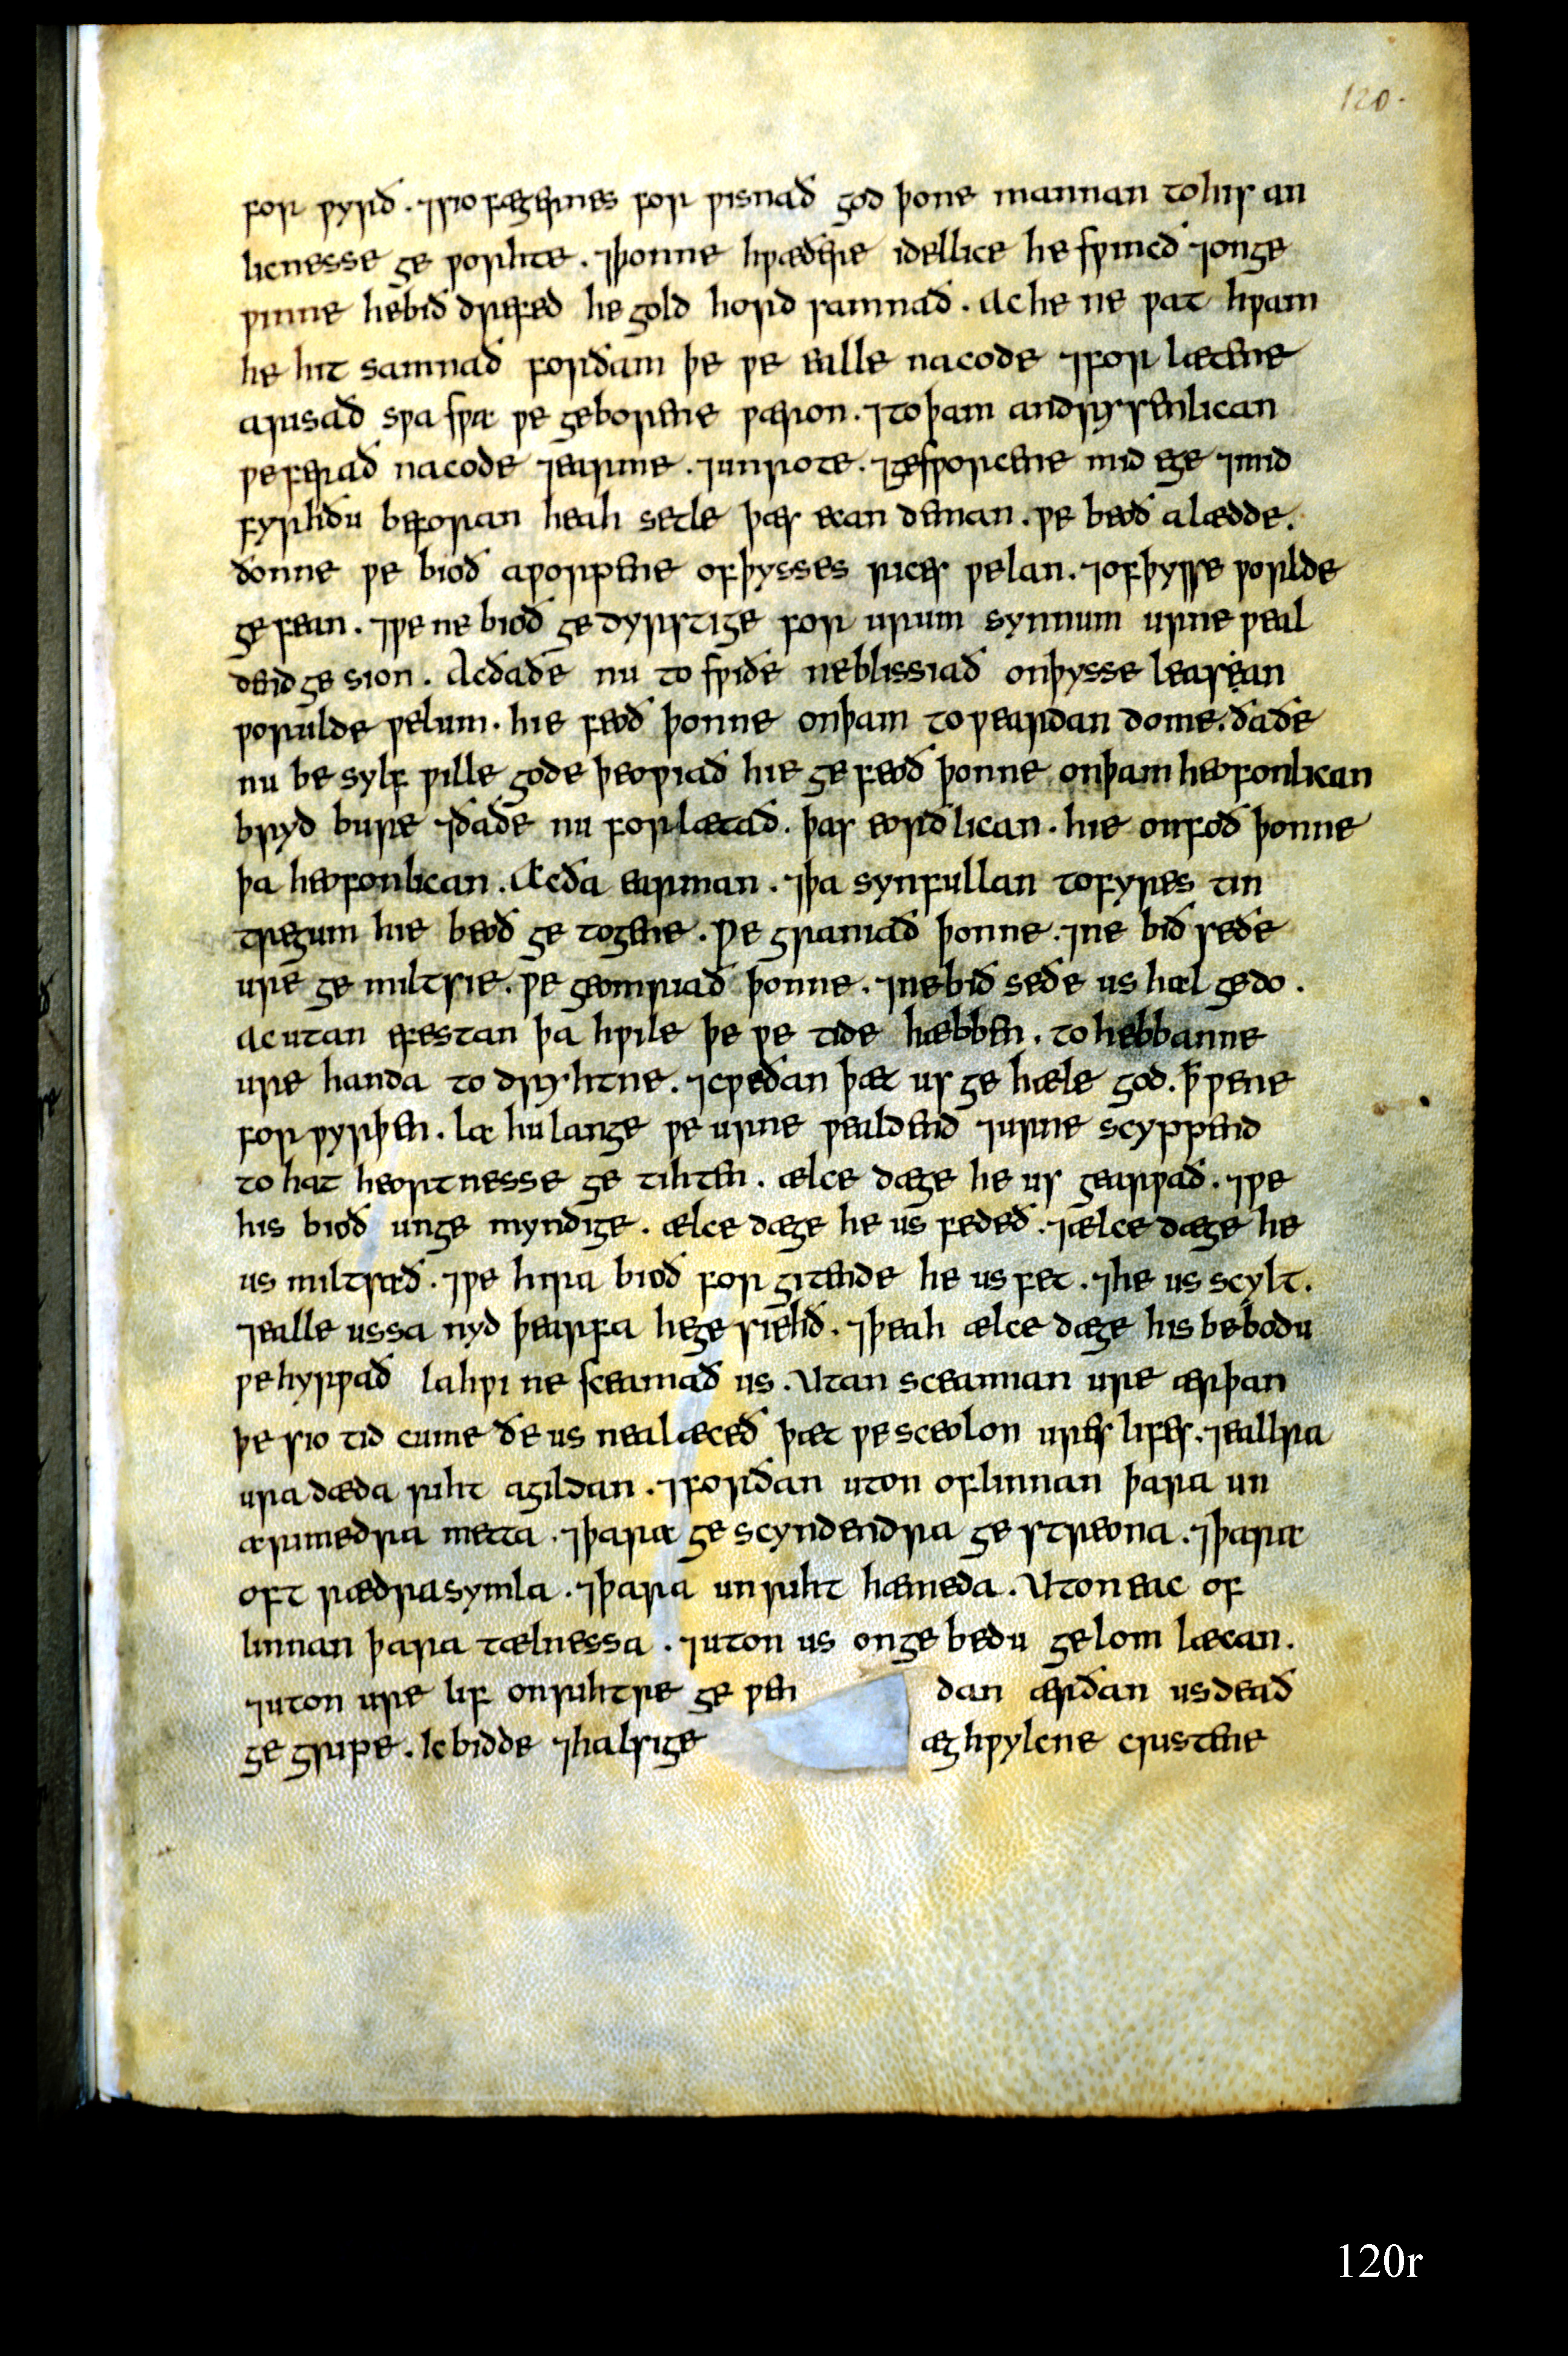 120.
for ƿyrð . ⁊ sio fægernes for ƿisnað god þone mannan to his an
licnesse ge ƿorhte . ⁊ þonne hƿæðere idellice he sƿinceð ⁊ onge
ƿinne he bið drefed he gold hord samnað . Ac he ne ƿat hƿam
he hit samnað forðam þe ƿe ealle nacode ⁊ for lætene
arisað sƿa sƿa ƿe geborene ƿæron . ⁊ to þam andrysenlican
ƿe ferað nacode ⁊ earme . ⁊ unrote . ⁊ gesƿorcene mid ege ⁊ mid
fyrhðu beforan heah setle þæs ecan deman . ƿe beoð alædde .
ðonne ƿe bioð aƿorpene of þysses rices ƿelan . ⁊ of þysse ƿorlde
ge fean . ⁊ ƿe ne bioð ge dyrstige for urum synnum urne ƿeal
dend ge sion . Ac ða ðe nu to sƿiðe ne blissiað on þysse leasan
ƿorulde ƿelum . hie feoð þonne on þam to ƿeardan dome . ða ðe
nu be sylf ƿille gode þeoƿiað hie ge feoð þonne on þam heofonlican
bryd bure ⁊ ða ðe nu forlætað . þas eorðlican . hie onfoð þonne
þa heofonlican . Ac ða earman . ⁊ þa synfullan to fyres tin
tregum hie beoð ge togene . Ƿe graniað þonne . ⁊ ne bið se ðe
ure ge miltsie . ƿe geomriað þonne . ⁊ ne bið se ðe us hæl gedo .
Ac utan efestan þa hƿile þe ƿe tide hæbben . to hebbanne
ure handa to dryhtne . ⁊ cƿeðan þæt us ge hæle god . þ̄ ƿe ne
for ƿyrþen . Læ hu lange ƿe urne ƿealdend ⁊ urne scyppend
to hat heortnesse ge tihten . ælce dæge he us gearƿað . ⁊ ƿe
his bioð unge myndige . ælce dæge he us fedeð . ⁊ ælce dæge he
us miltsæð . ⁊ ƿe hira bioð for gitende he us fet . ⁊ he us scylt .
⁊ ealle ussa nyd þearfa he ge siehð . ⁊ þeah ælce dæge his bebodu
ƿe hyrƿað la hƿi ne sceamað us . Utan sceamian ure ær þan
þe sio tid cume ðe us nealæceð þæt ƿe sceolon ures lifes . ⁊ eallra
ura dæda riht agildan . ⁊ forðan uton oflinnan þara un
ærimedra metta . ⁊ þaræ ge scyndendra ge streona . ⁊ þaræ
oft rædra symla . ⁊ þara unriht hæmeda . Uton eac of
linnan þara tælnessa . ⁊ uton us on ge bedu gelom læcan .
⁊ uton ure lif on rihtre ge ƿen dan ær ðan us deað
ge gripe . Ic bidde ⁊ halsige æghƿylcne cristene
120r